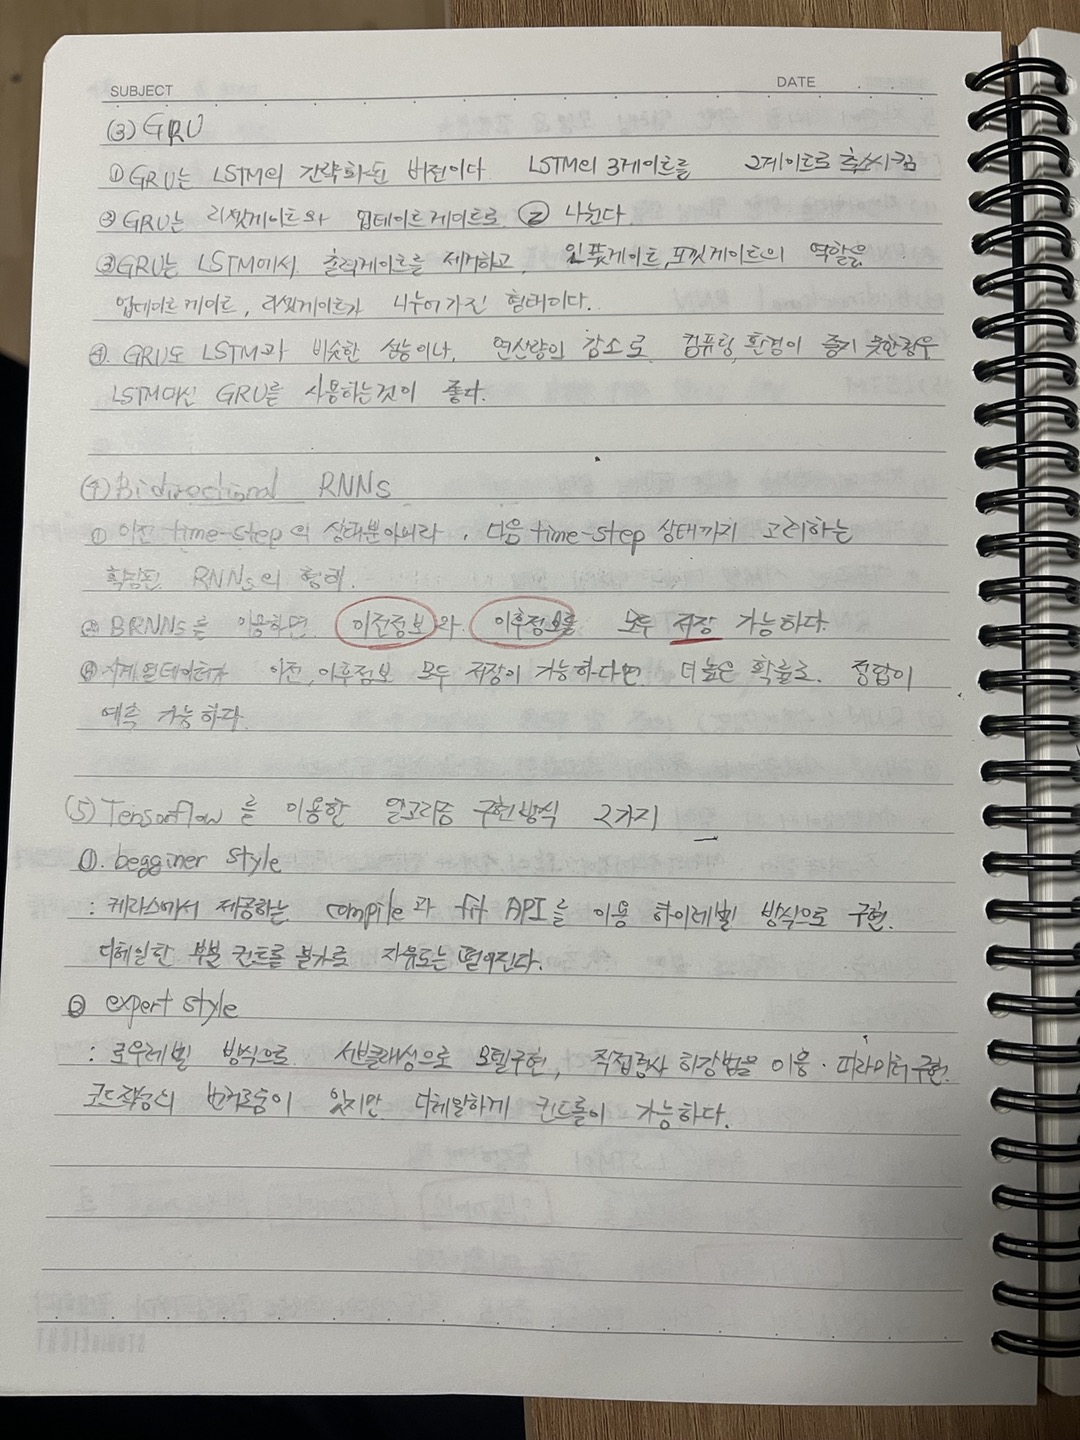 SUBJECT
DATE
(3) GRU
① GRU는 LSTM의 간략화된 버전이다 LSTM의 3게이트를 2게이트로 축소시킴
② GRU는 리셋게이트와 업데이트게이트로 ② 나뉜다
③ GRU는 LSTM에서 출력게이트를 제거하고, 인풋게이트,포겟게이트의 역할을
업데이트 게이트, 리셋게이트가 나누어가진 형태이다.
④ GRU도 LSTM과 비슷한 성능이나, 연산량의 감소로 컴퓨팅,환경이 좋지 못한경우
LSTM대신 GRU를 사용하는것이 좋다.
(4) Bidirectional RNNs
① 이전 time-step의 상태뿐아니라, 다음 time-step 상태까지 고려하는
확장된 RNNs의 형태.
② BRNNs를 이용하면 이전정보와 이후정보를 모두 저장 가능하다.
③ 시계열데이터가 이전,이후정보 모두 저장이 가능하다면 더 높은 확률로 정답이
예측 가능하다.
(5) Tensorflow를 이용한 알고리즘 구현방식 2가지
①. begginer style
: 케라스에서 제공하는 compile과 fit API를 이용 하이레벨 방식으로 구현.
디테일한 부분 컨트롤 불가로 자유도는 떨어진다.
② expert style
: 로우레벨 방식으로 서브클래싱으로 모델구현, 직접경사 하강법을 이용·파라미터 구현.
코드작성의 번거로움이 있지만 디테일하게 컨트롤이 가능하다.